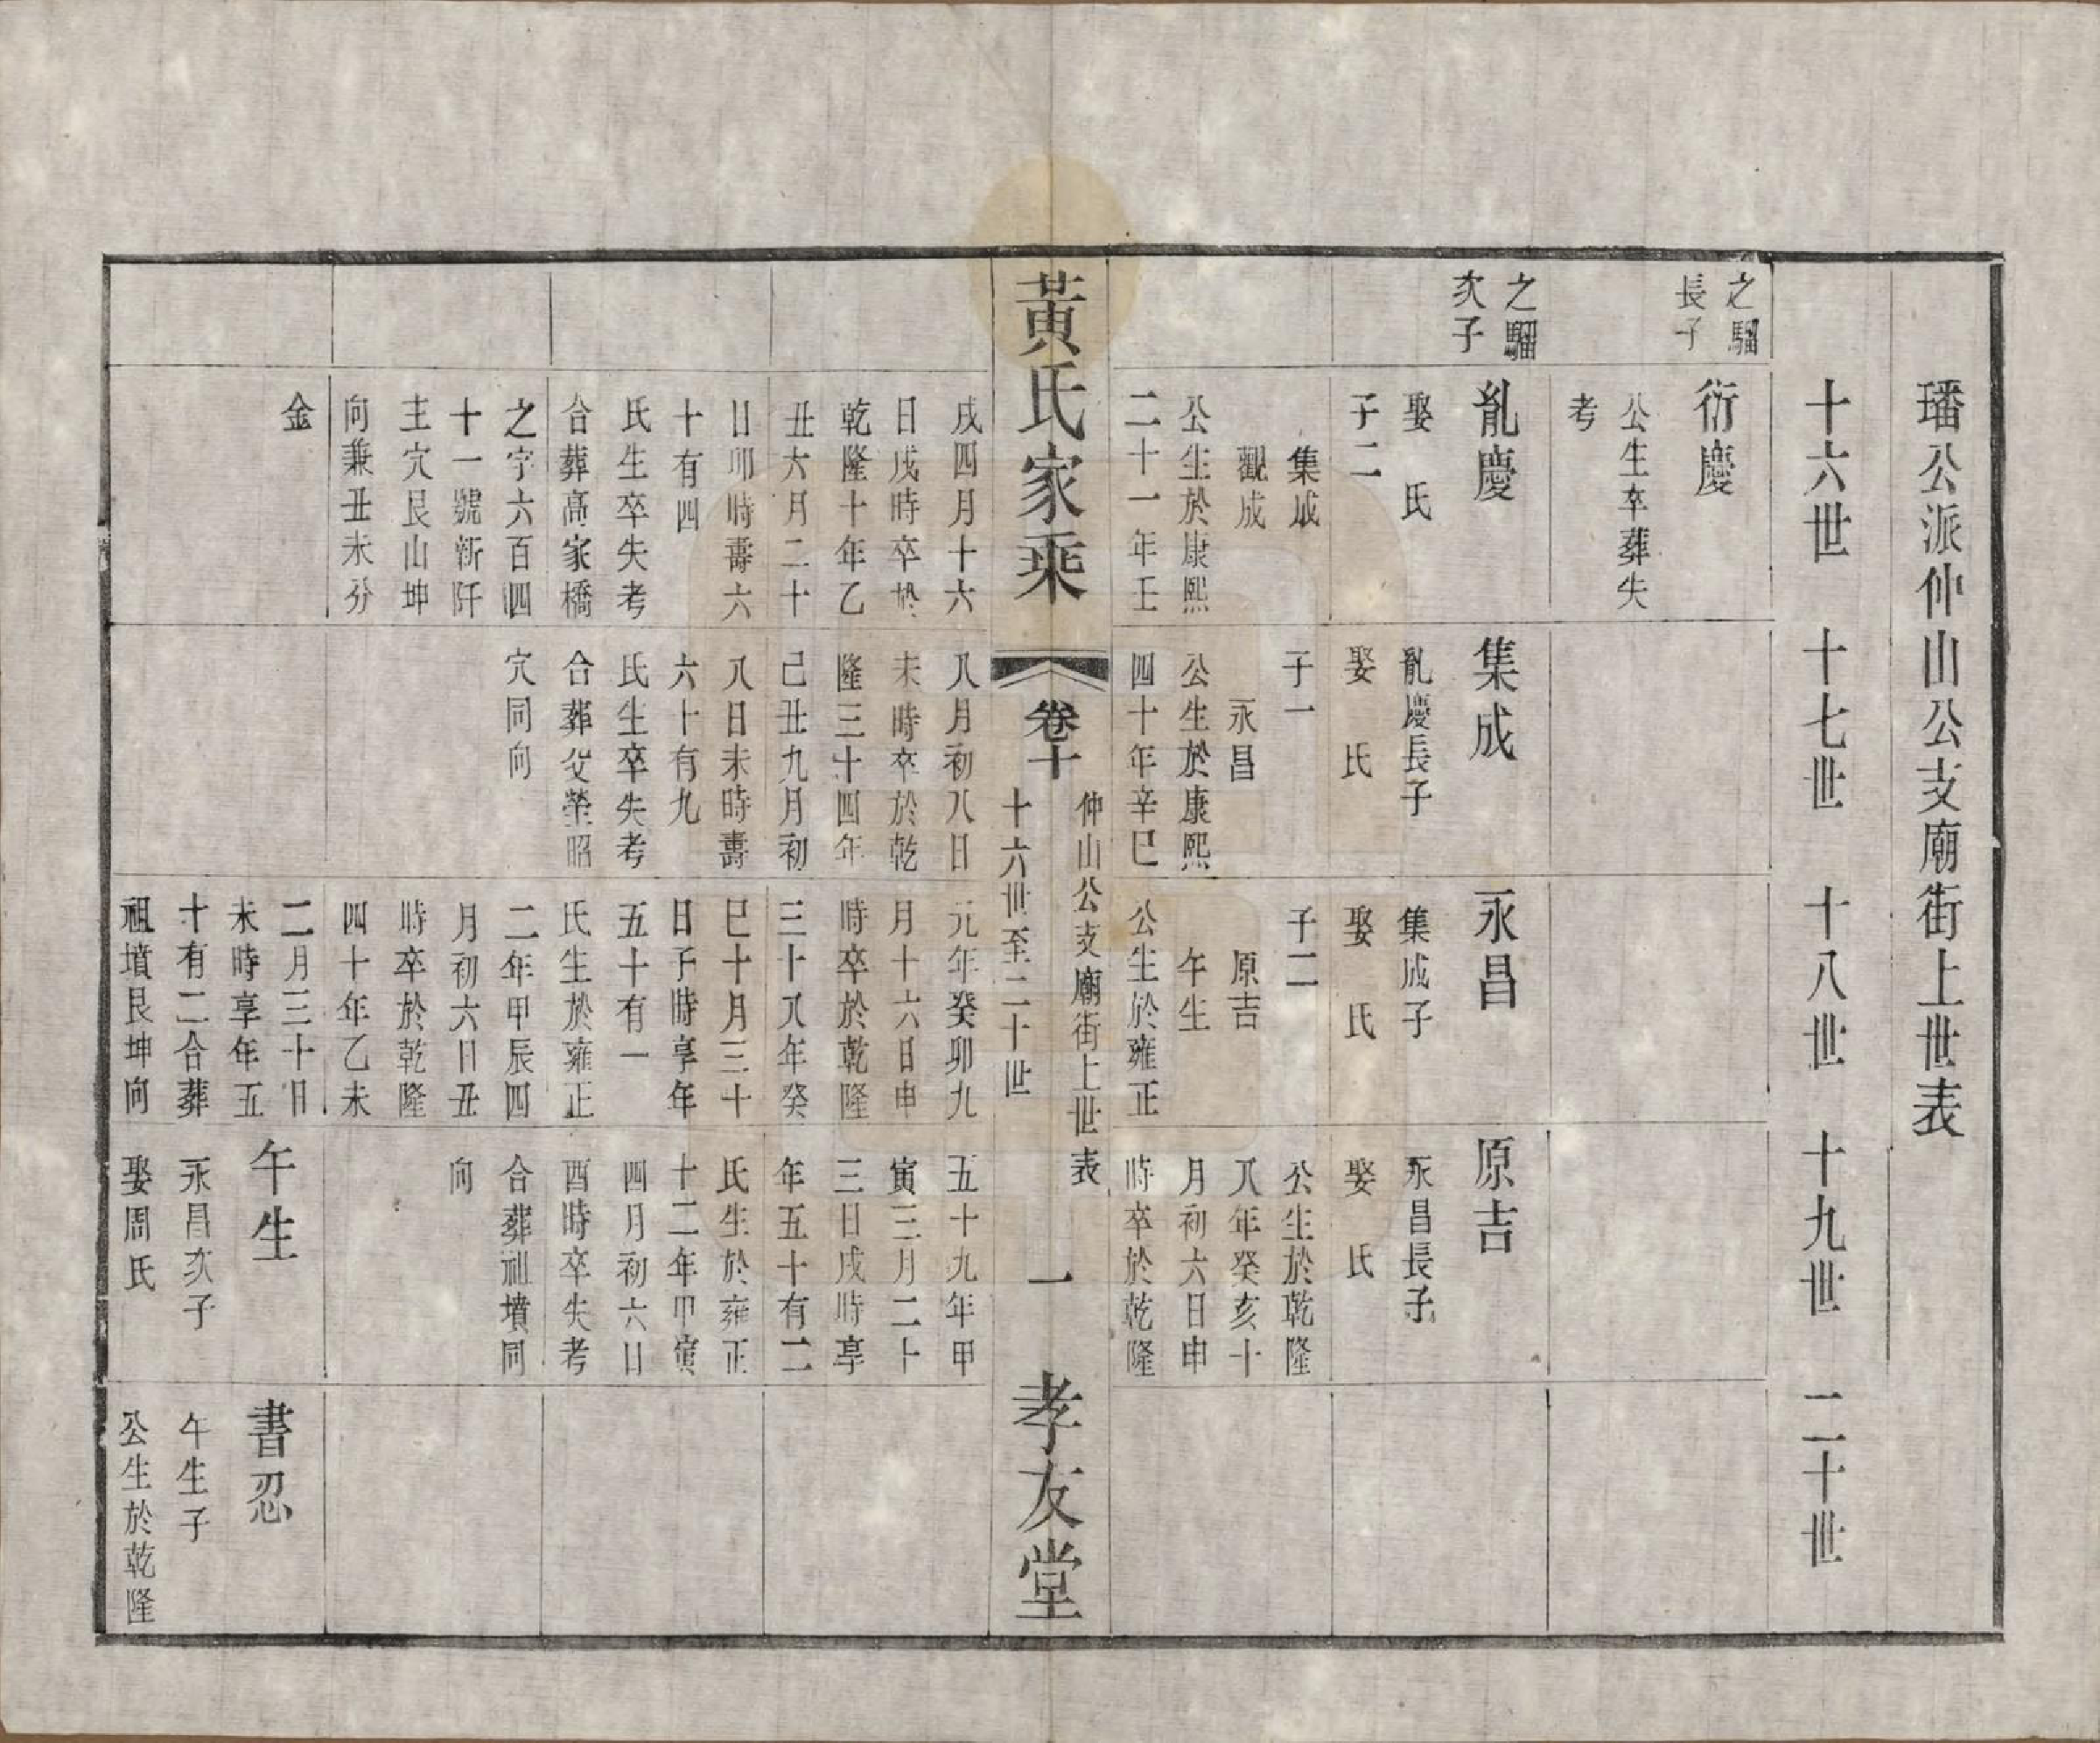 璠公派仲山公支廟街上世表
十六世　十七世　十八世　十九世　二十世
之騮
長子
衍慶
公生卒葬失
考
之騮
次子
胤慶
娶　氏
子二
集成
觀成
公生於康熙
二十一年壬
戌四月十六
日戌時卒於
乾隆十年乙
丑六月二十
日卯時壽六
十有四
氏生卒失考
合葬高家橋
之字六百四
十一號新阡
主穴艮山坤
向兼丑未分
金
集成
胤慶長子
娶　氏
子一
永昌
公生於康熙
四十年辛巳
八月初八日
未時卒於乾
隆三十四年
己丑九月初
八日未時壽
六十有九
氏生卒失考
合葬父塋昭
穴同向
永昌
集成子
娶　氏
子二
原吉
午生
公生於雍正
元年癸卯九
月十六日申
時卒於乾隆
三十八年癸
巳十月三十
日子時享年
五十有一
氏生於雍正
二年甲辰四
月初六日丑
時卒於乾隆
四十年乙未
二月三十日
未時享年五
十有二合葬
祖墳艮坤向
原吉
永昌長子
娶　氏
公生於乾隆
八年癸亥十
月初六日申
時卒於乾隆
五十九年甲
寅三月二十
三日戌時享
年五十有二
氏生於雍正
十二年甲寅
四月初六日
酉時卒失考
合葬祖墳同
向
午生
永昌次子
娶周氏
書忍
午生子
公生於乾隆
黃氏家乘
卷十
仲山公支廟街上世表
十六世至二十世
一
孝友堂